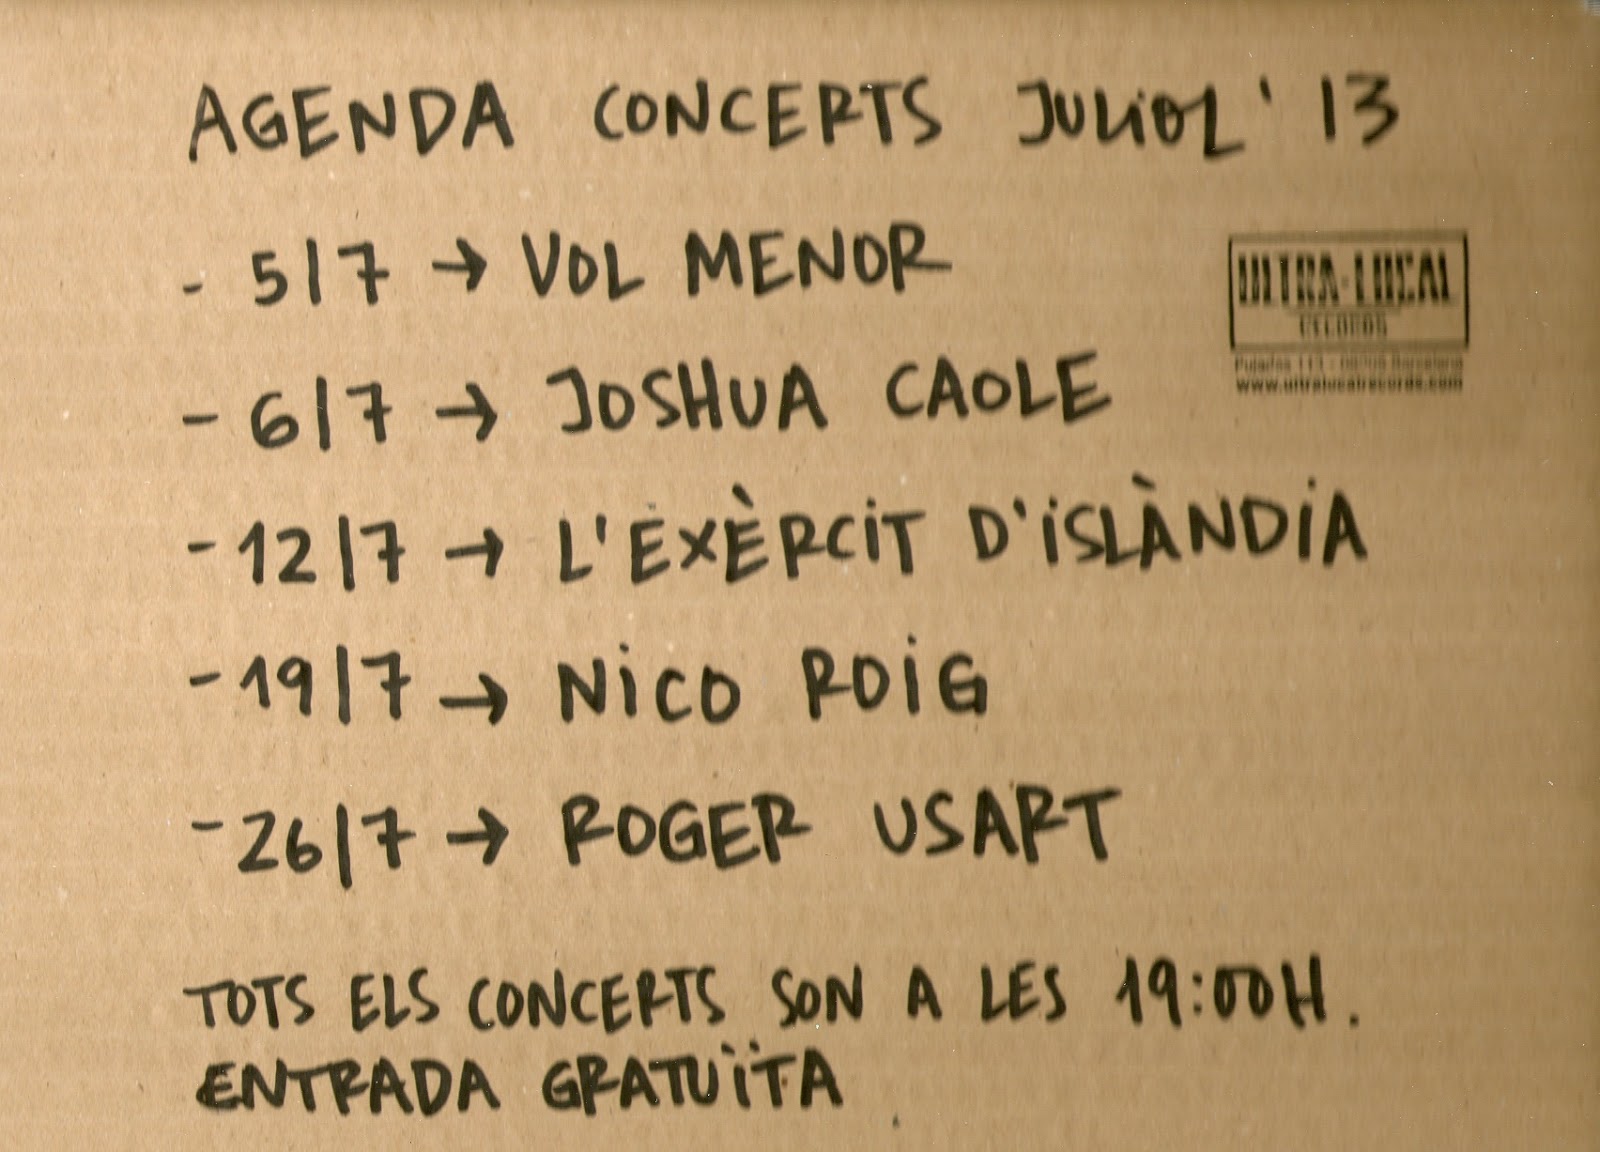 AGENDA CONCERTS JULiOL '13
- 5/7 → VOL MENOR
- 6/7 → JOSHUA CAOLE
- 12/7 → L'EXÈRCiT D'iSLÀNDiA
- 19/7 → NiCO ROiG
- 26/7 → ROGER USART
TOTS ELS CONCERTS SON A LES 19:00H.
ENTRADA GRATUÏTA
ULTRA-LOCAL
RECORDS
Pujades 113 - 08005 Barcelona
www.ultralocalrecords.com